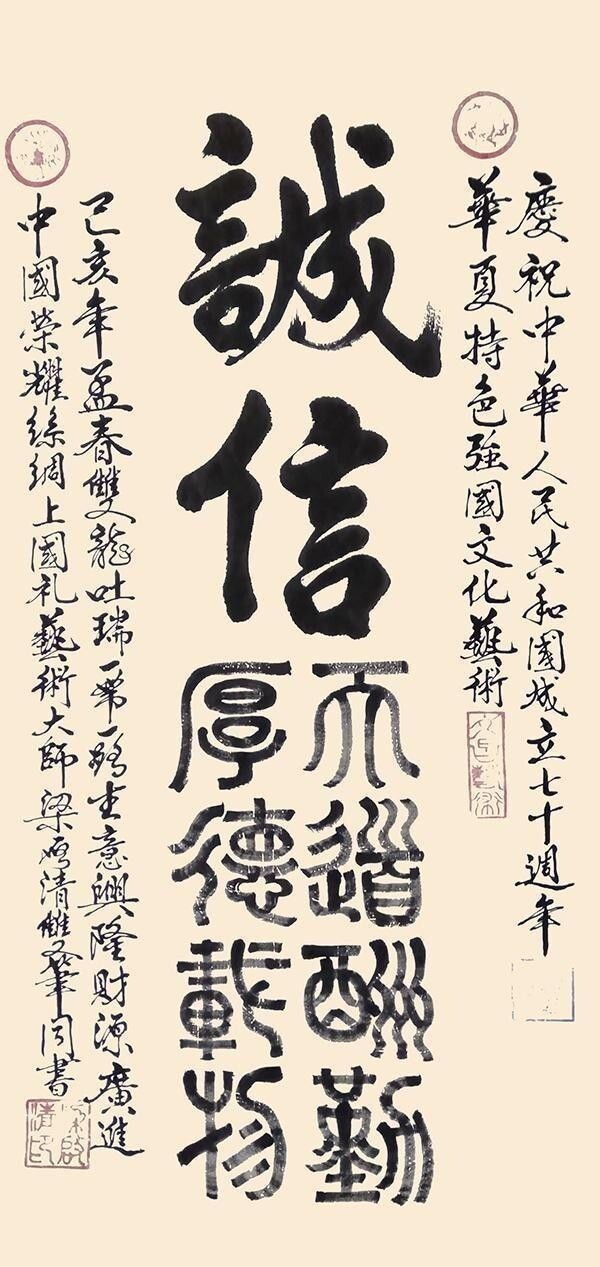 慶祝中華人民共和國成立七十週年
華夏特色強國文化藝術
誠信
天道酬勤
厚德載物
己亥年孟春雙龍吐瑞一筆一鵝生意興隆財源廣進
中國榮耀絲綢上國礼藝術大師梁啓清雙筆同書
梁啟清印